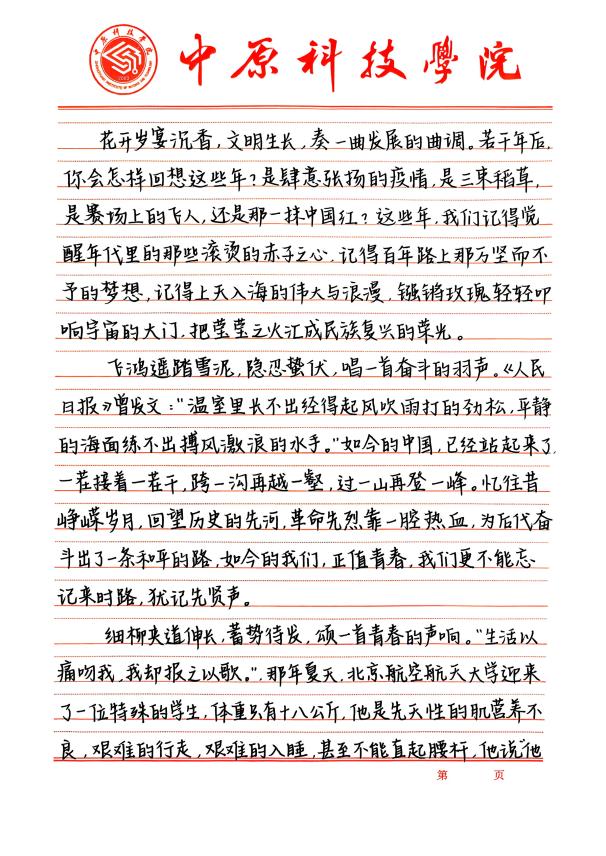 中原科技學院
中原科技學院
花开岁宴沉香，文明生长，奏一曲发展的曲调。若干年后，
你会怎样回想这些年？是肆意张扬的疫情，是三束稻草，
是赛场上的飞人，还是那一抹中国红？这些年，我们记得觉
醒年代里的那些滚烫的赤子之心，记得百年路上那万坚而不
予的梦想，记得上天入海的伟大与浪漫，镪锵玫瑰轻轻叩
响宇宙的大门，把莹莹之火汇成民族复兴的荣光。
飞鸿遥踏雪泥，隐忍蛰伏，唱一首奋斗的羽声。《人民
日报》曾发文：“温室里长不出经得起风吹雨打的劲松，平静
的海面练不出搏风激浪的水手。”如今的中国，已经站起来了，
一茬接着一茬干，跨一沟再越一壑，过一山再登一峰。忆往昔
峥嵘岁月，回望历史的先河，革命先烈靠一腔热血，为后代奋
斗出了一条和平的路，如今的我们，正值青春，我们更不能忘
记来时路，犹记先贤声。
细柳夹道伸长，蓄势待发，颂一首青春的声响。“生活以
痛吻我，我却报之以歌。”，那年夏天，北京航空航天大学迎来
了一位特殊的学生，体重只有十八公斤，他是先天性的肌营养不
良，艰难的行走，艰难的入睡，甚至不能直起腰杆，他说“他
第 页